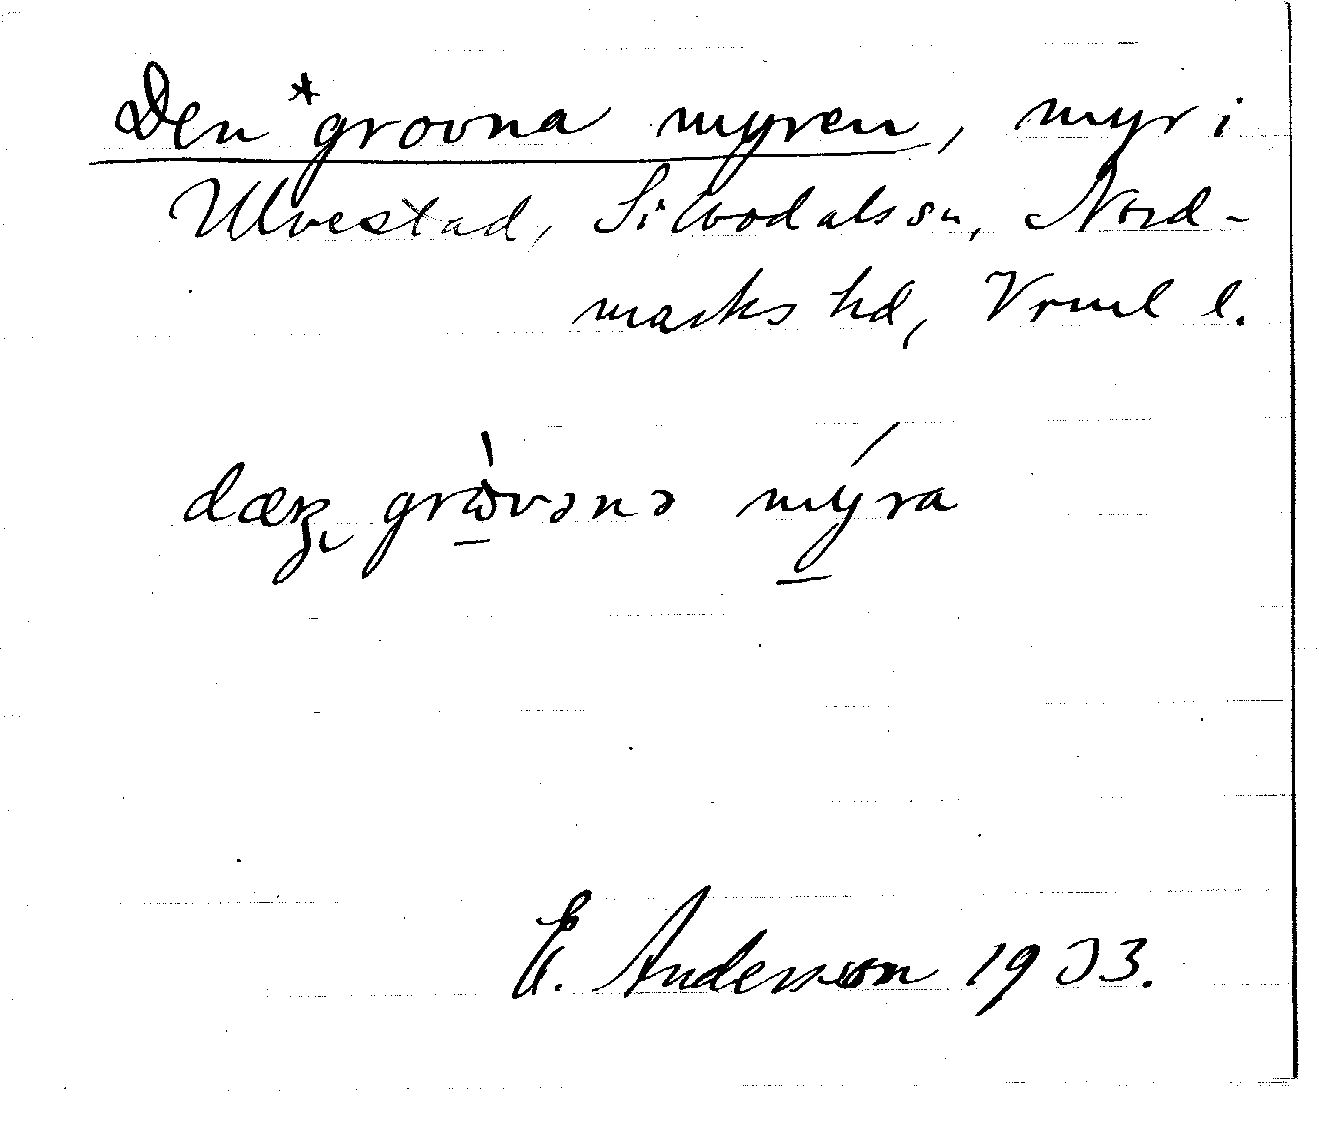 Den *grovna myren, myr i
Ulvestad, Silbodals sn, Nord-
marks hd, Vrml l.
gròvənə mýra
E. Andersson 1933.